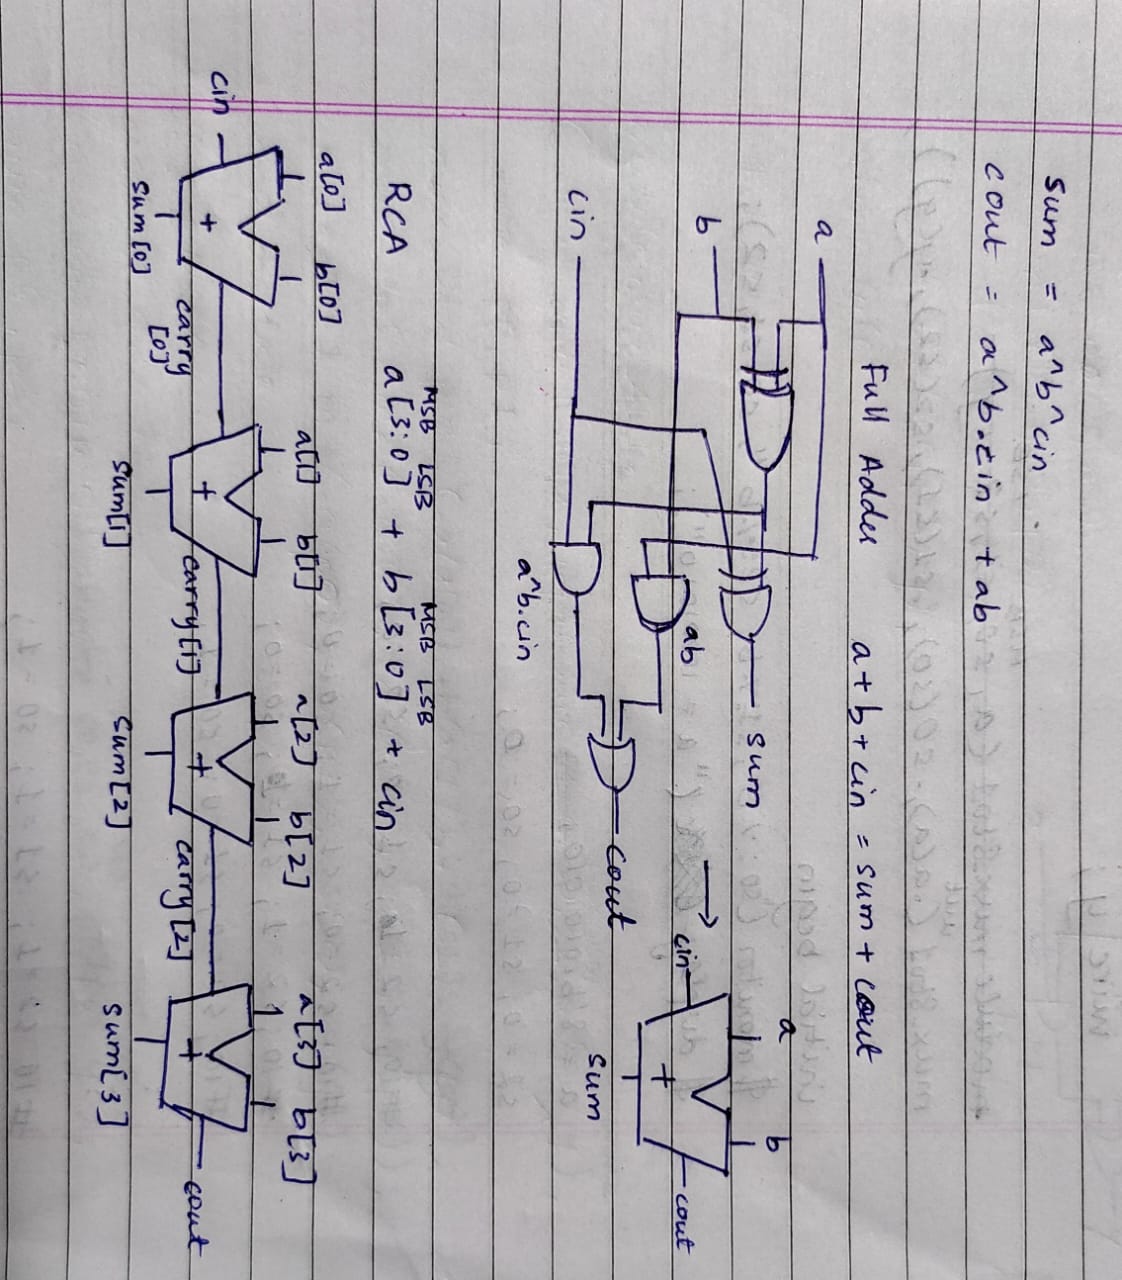 sum = a^b^cin.
cout = a^b.cin + ab
Full Adder a+b+cin = sum + cout
a
b
cin
ab
a^b.cin
sum
cout
→ cin
a
b
+
sum
cout
MSB LSB MSB LSB
RCA a[3:0] + b[3:0] + cin
a[0] b[0] a[1] b[1] a[2] b[2] a[3] b[3]
cin + + + + cout
carry[0] carry[1] carry[2]
sum[0] sum[1] sum[2] sum[3]